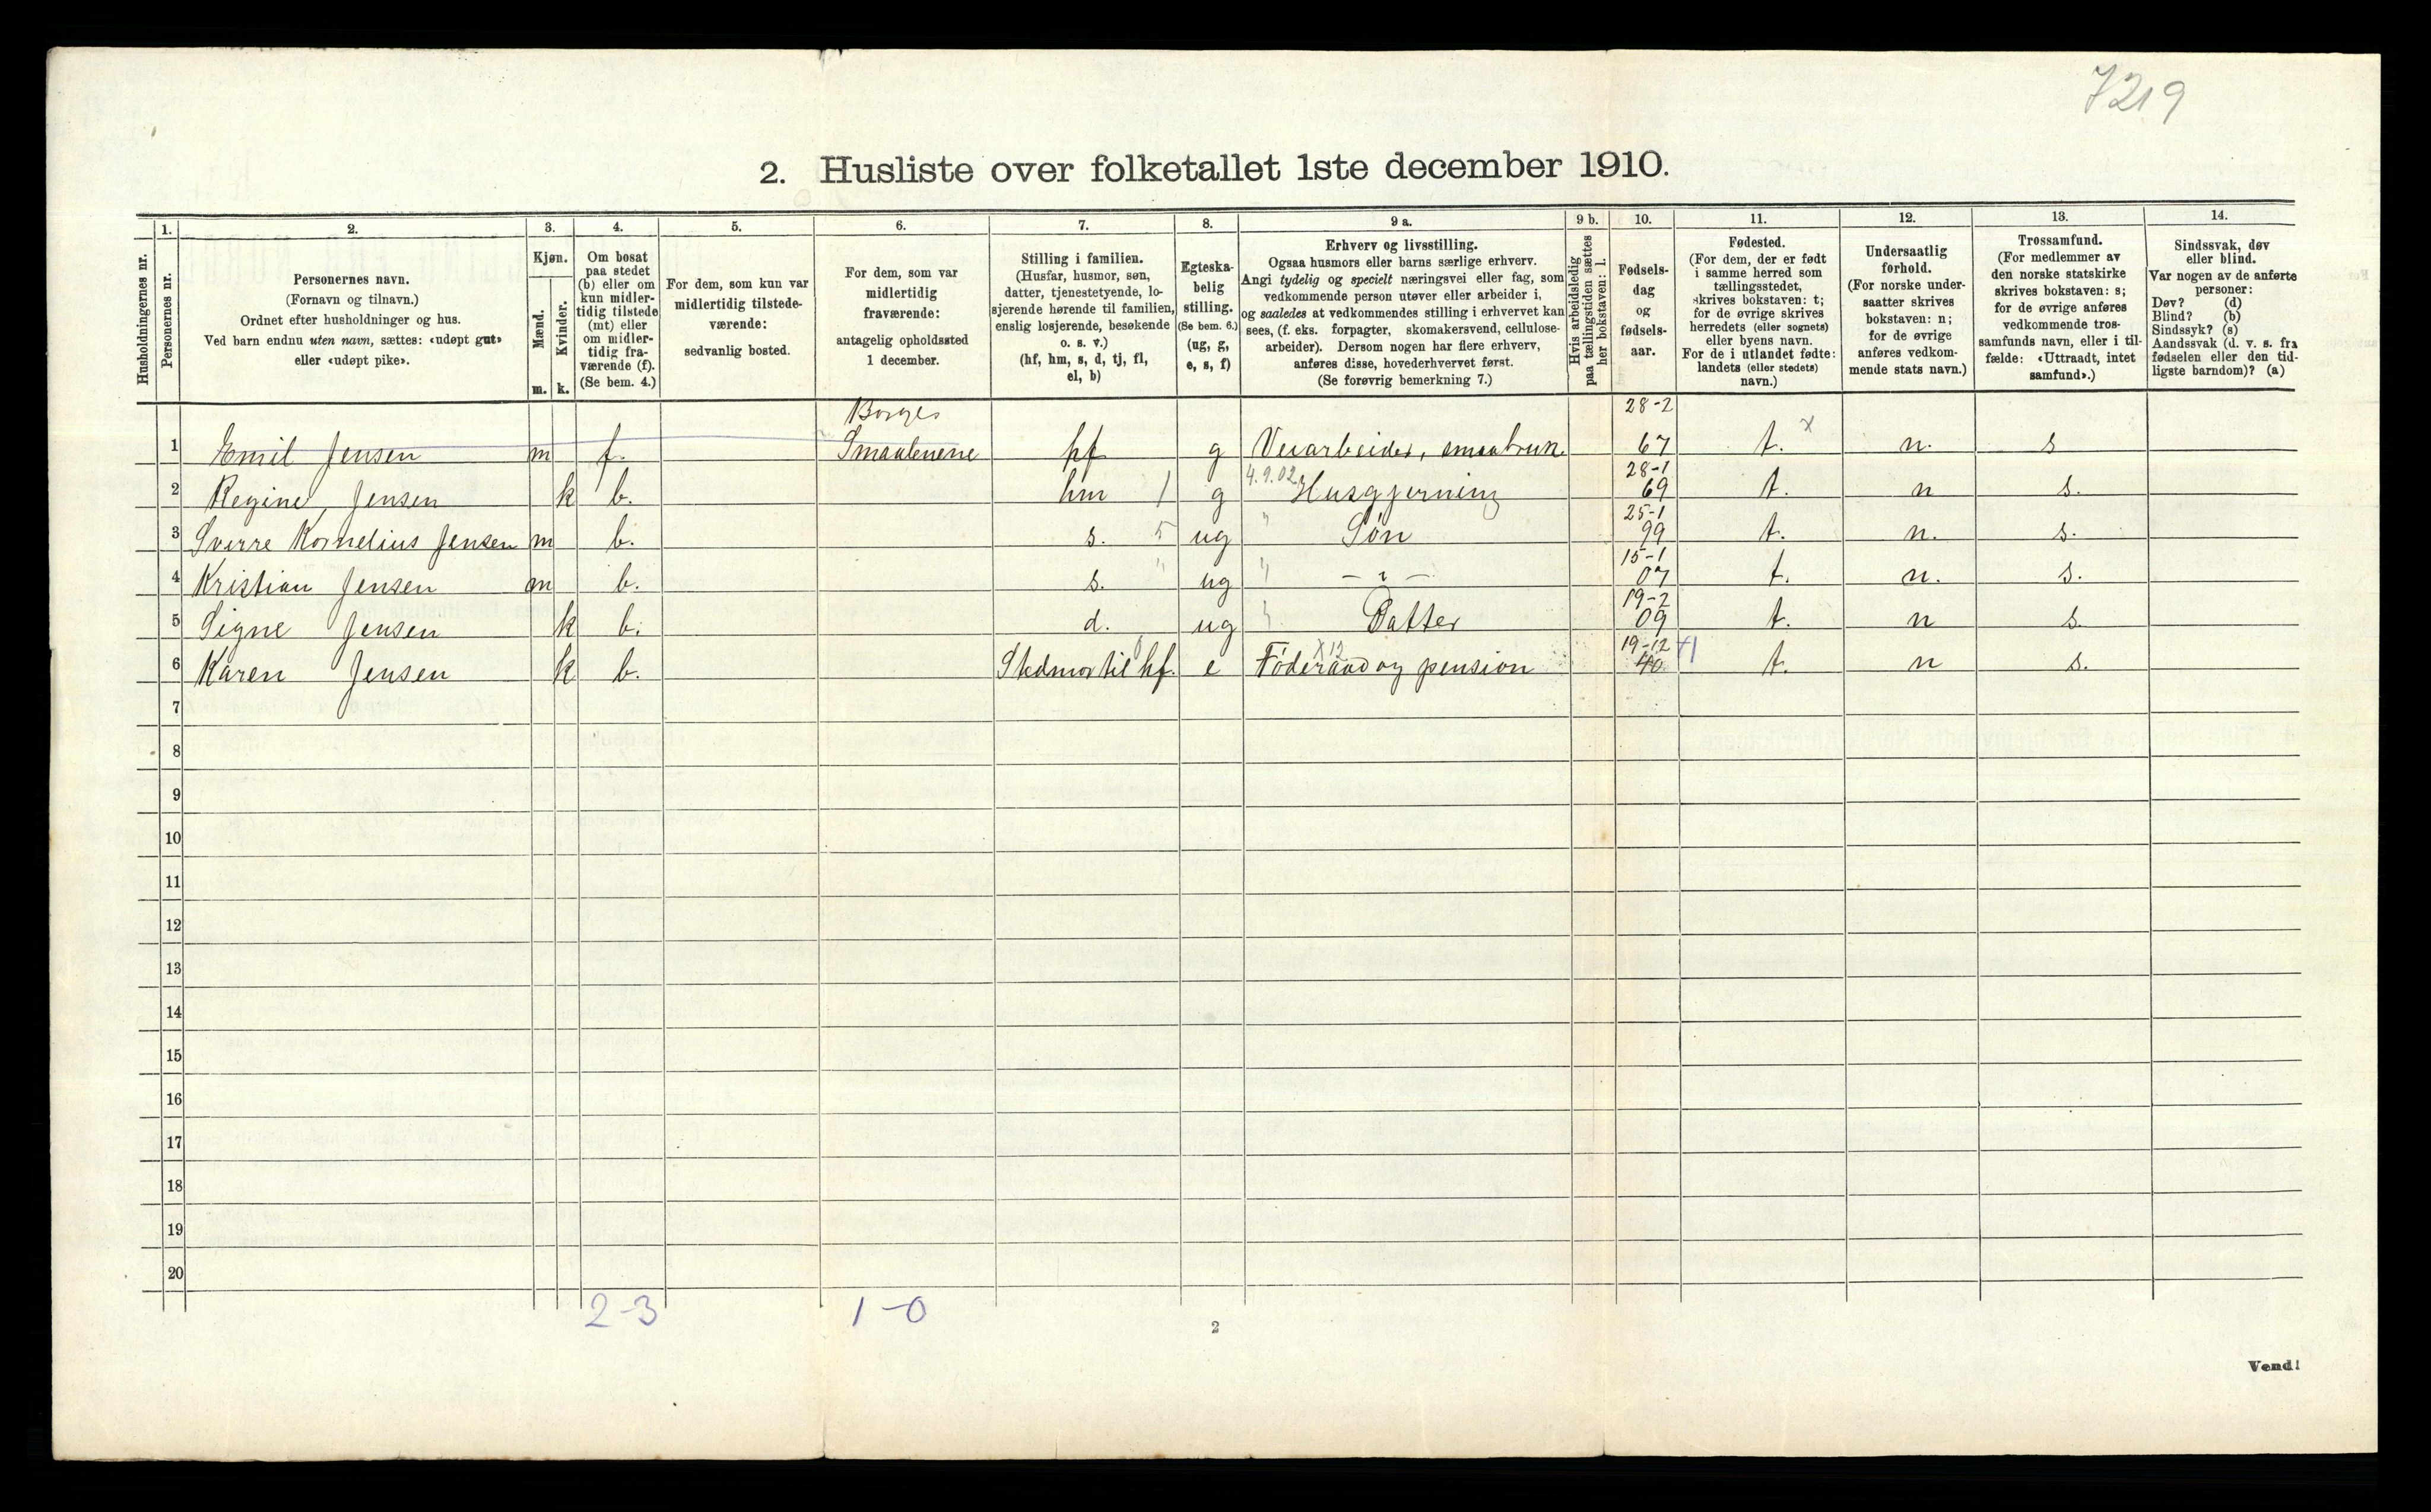 7219
2. Husliste over folketallet 1ste december 1910.
Husholdningernes nr.
1.
Personernes nr.
2.
Personernes navn.
(Fornavn og tilnavn.)
Ordnet efter husholdninger og hus.
Ved barn endnu uten navn, sættes: «udøpt gut»
eller «udøpt pike».
3.
Kjøn.
Mænd.
Kvinder.
m. k.
4.
Om bosat
paa stedet
(b) eller om
kun midler-
tidig tilstede
(mt) eller
om midler-
tidig fra-
værende (f).
(Se bem. 4.)
5.
For dem, som kun var
midlertidig tilstede-
værende:
sedvanlig bosted.
6.
For dem, som var
midlertidig
fraværende:
antagelig opholdssted
1 december.
7.
Stilling i familien.
(Husfar, husmor, søn,
datter, tjenestetyende, lo-
sjerende hørende til familien,
enslig losjerende, besøkende
o. s. v.)
(hf, hm, s, d, tj, fl,
el, b)
8.
Egteska-
belig
stilling.
(Se bem. 6.)
(ug, g,
e, s, f)
9 a.
Erhverv og livsstilling.
Ogsaa husmors eller barns særlige erhverv.
Angi tydelig og specielt næringsvei eller fag, som
vedkommende person utøver eller arbeider i,
og saaledes at vedkommendes stilling i erhvervet kan
sees, (f. eks. forpagter, skomakersvend, cellulose-
arbeider). Dersom nogen har flere erhverv,
anføres disse, hovederhvervet først.
(Se forøvrig bemerkning 7.)
9 b.
Hvis arbeidsledig
paa tællingstiden sættes
her bokstaven: l.
10.
Fødsels-
dag
og
fødsels-
aar.
11.
Fødested.
(For dem, der er født
i samme herred som
tællingsstedet,
skrives bokstaven: t;
for de øvrige skrives
herredets (eller sognets)
eller byens navn.
For de i utlandet fødte:
landets (eller stedets)
navn.)
12.
Undersaatlig
forhold.
(For norske under-
saatter skrives
bokstaven: n;
for de øvrige
anføres vedkom-
mende stats navn.)
13.
Trossamfund.
(For medlemmer av
den norske statskirke
skrives bokstaven: s;
for de øvrige anføres
vedkommende tros-
samfunds navn, eller i til-
fælde: «Uttraadt, intet
samfund».)
14.
Sindssvak, døv
eller blind.
Var nogen av de anførte
personer:
Døv? (d)
Blind? (b)
Sindssyk? (s)
Aandssvak (d. v. s. fra
fødselen eller den tid-
ligste barndom)? (a)
Borges 28-2
1 Emil Jensen m f. Smaalenene hf g Veiarbeider, smaabruk 67 t. x n. s
4.9.02 28-1
2 Regine, Jensen k b. hm 1 g Husgjerning 69 t. n s.
25-1
3 Sverre Kornelius Jensen m b. s. 5 ug " Søn 99 t. n. s.
15-1
4 Kristian Jensen m b. s. " ug " - " - 07 t. n. s.
19-2
5 Signe Jensen k b. d. ug " Datter 09 t. n s.
X12 19-12
6 Karen Jensen k b. Stedmor til hf. e Føderaad og pension 40 41 t. n s.
7
8
9
10
11
12
13
14
15
16
17
18
19
20
2-3 1-0
2
Vend!